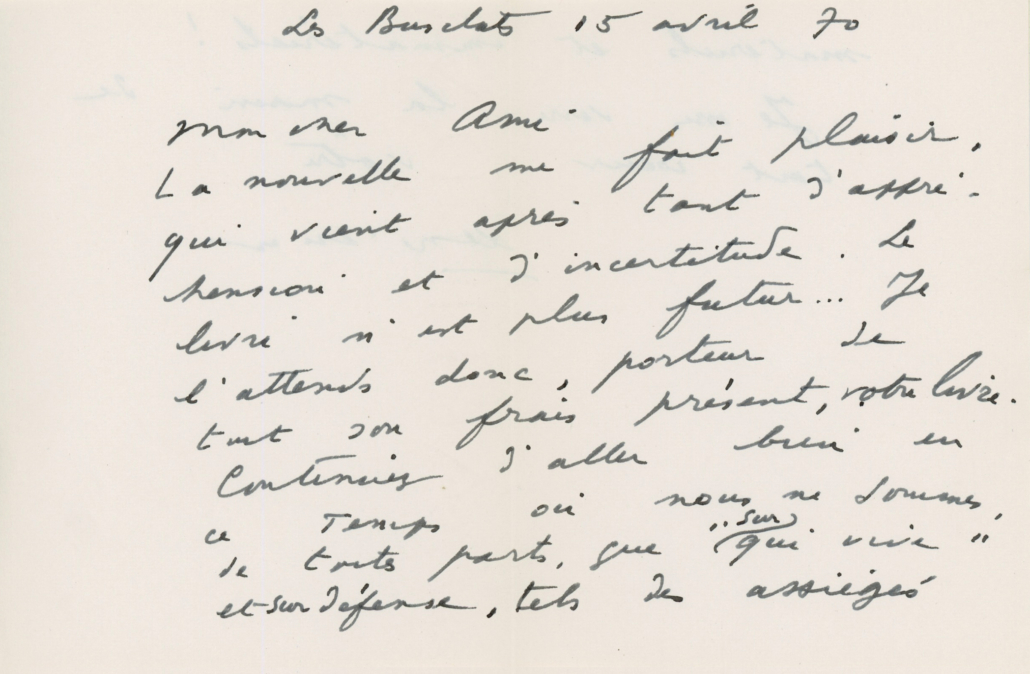 Les Busclats 15 avril 70
mon cher Ami
La nouvelle me fait plaisir,
qui vient après tant d'appré-
hension et d'incertitude. Le
livre n'est plus futur... Je
l'attends donc, porteur de
tout son frais présent, votre livre.
Continuez d'aller bien en
ce Temps où nous ne sommes,
de toutes parts, que "sur qui vive"
et sur défense, tels des assiégés